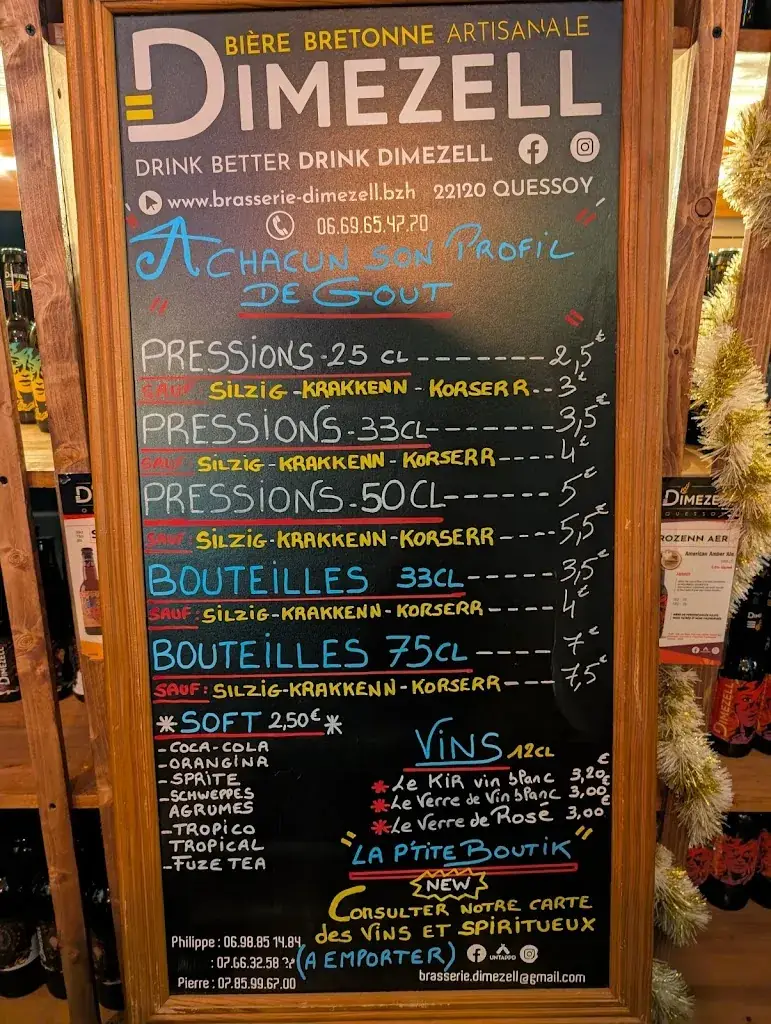 BIÈRE BRETONNE ARTISANALE
DIMEZELL
DRINK BETTER DRINK DIMEZELL
www.brasserie-dimezell.bzh 22120 QUESSOY
06.69.65.47.70
" A CHACUN SON PROFIL "
" DE GOUT "
PRESSIONS-25 CL -------- 2,5€
SAUF: SILZIG-KRAKKENN-KORSERR-- 3€
PRESSIONS-33CL------- 3,5€
SAUF: SILZIG-KRAKKENN-KORSERR---- 4€
PRESSIONS-50CL------ 5€
SAUF: SILZIG-KRAKKENN-KORSERR---- 5,5€
BOUTEILLES 33CL----- 3,5€
SAUF: SILZIG-KRAKKENN-KORSERR---- 4€
BOUTEILLES 75CL---- 7€
SAUF: SILZIG-KRAKKENN-KORSERR---- 7,5€
*SOFT 2,50€*
-COCA-COLA
-ORANGINA
-SPRITE
-SCHWEPPES
AGRUMES
-TROPICO
TROPICAL
-FUZE TEA
VINS 12CL
*Le KIR vin blanc 3,20€
*Le Verre de Vin blanc 3,00€
*Le Verre de Rosé 3,00€
"LA P'TITE BOUTIK"
NEW
CONSULTER NOTRE CARTE
des VINS ET SPIRITUEUX
(A EMPORTER)
UNTAPPD
brasserie.dimezell@gmail.com
Philippe : 06.98.85.14.84
: 07.66.32.58
Pierre : 07.85.99.67.00
DIMEZE
QUESSOY
ROZENN AER
American Amber Ale
DIMEZELL